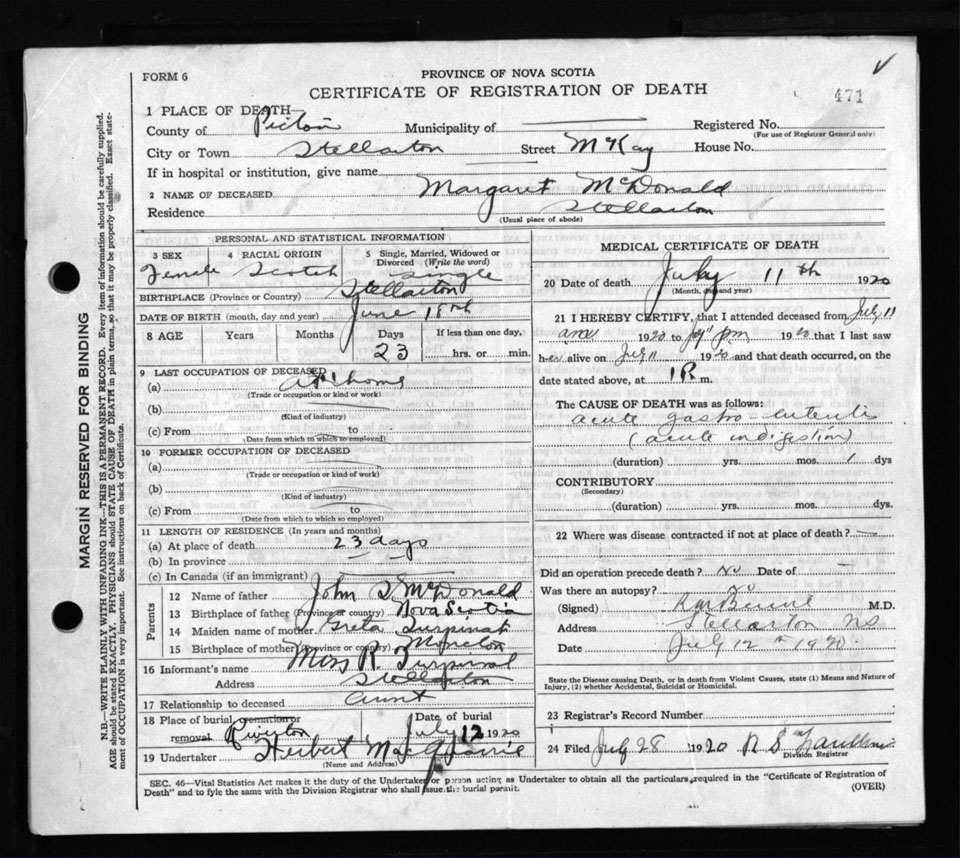 FORM 6
PROVINCE OF NOVA SCOTIA
CERTIFICATE OF REGISTRATION OF DEATH
471
1 PLACE OF DEATH
County of Pictou Municipality of Registered No.
(For use of Registrar General only)
City or Town Stellarton Street McKay House No.
If in hospital or institution, give name
2 NAME OF DECEASED Margaret McDonald
Residence Stellarton
(Usual place of abode)
PERSONAL AND STATISTICAL INFORMATION
3 SEX 4 RACIAL ORIGIN 5 Single, Married, Widowed or Divorced (Write the word)
Female Scotch Single
BIRTHPLACE (Province or Country) Stellarton
DATE OF BIRTH (month, day and year) June 18th
8 AGE Years Months Days If less than one day,
23 hrs. or min.
9 LAST OCCUPATION OF DECEASED
(a) At home
(Trade or occupation or kind or work)
(b)
(Kind of industry)
(c) From to
(Date from which to which so employed)
10 FORMER OCCUPATION OF DECEASED
(a)
(Trade or occupation or kind of work)
(b)
(Kind of industry)
(c) From to
(Date from which to which so employed)
11 LENGTH OF RESIDENCE (In years and months)
(a) At place of death 23 days
(b) In province
(c) In Canada (if an immigrant)
Parents
12 Name of father John D McDonald
13 Birthplace of father (Province or country) Nova Scotia
14 Maiden name of mother Greta
15 Birthplace of mother (Province or country)
16 Informant's name Miss R.
Address Stellarton
17 Relationship to deceased aunt
18 Place of burial, cremation or removal Riverton Date of burial July 12 1920
19 Undertaker Herbert
(Name and Address)
MEDICAL CERTIFICATE OF DEATH
20 Date of death July 11th 1920
(Month, day and year)
21 I HEREBY CERTIFY, that I attended deceased from July 11
1920 to pm 1920 that I last saw
her alive on July 11 1920 and that death occurred, on the
date stated above, at 1 P. m.
The CAUSE OF DEATH was as follows:
acute gastro-enteritis
(acute indigestion)
(duration) yrs. mos. 1 dys
CONTRIBUTORY
(Secondary)
(duration) yrs. mos. dys.
22 Where was disease contracted if not at place of death?
Did an operation precede death? No Date of
Was there an autopsy?
(Signed) M.D.
Address Stellarton NS
Date July 12th 1920.
State the Disease causing Death, or in death from Violent Causes, state (1) Means and Nature of
Injury, (2) whether Accidental, Suicidal or Homicidal.
23 Registrar's Record Number
24 Filed July 28 1920
Division Registrar
SEC. 46—Vital Statistics Act makes it the duty of the Undertaker or person acting as Undertaker to obtain all the particulars required in the "Certificate of Registration of
Death" and to fyle the same with the Division Registrar who shall issue the burial permit.
(OVER)
MARGIN RESERVED FOR BINDING
N.B.—WRITE PLAINLY WITH UNFADING INK—THIS IS A PERMANENT RECORD. Every item of information should be carefully supplied.
AGE should be stated EXACTLY. PHYSICIANS should STATE CAUSE OF DEATH in plain terms, so that it may be properly classified. Exact state-
ment of OCCUPATION is very important. See instructions on back of Certificate.